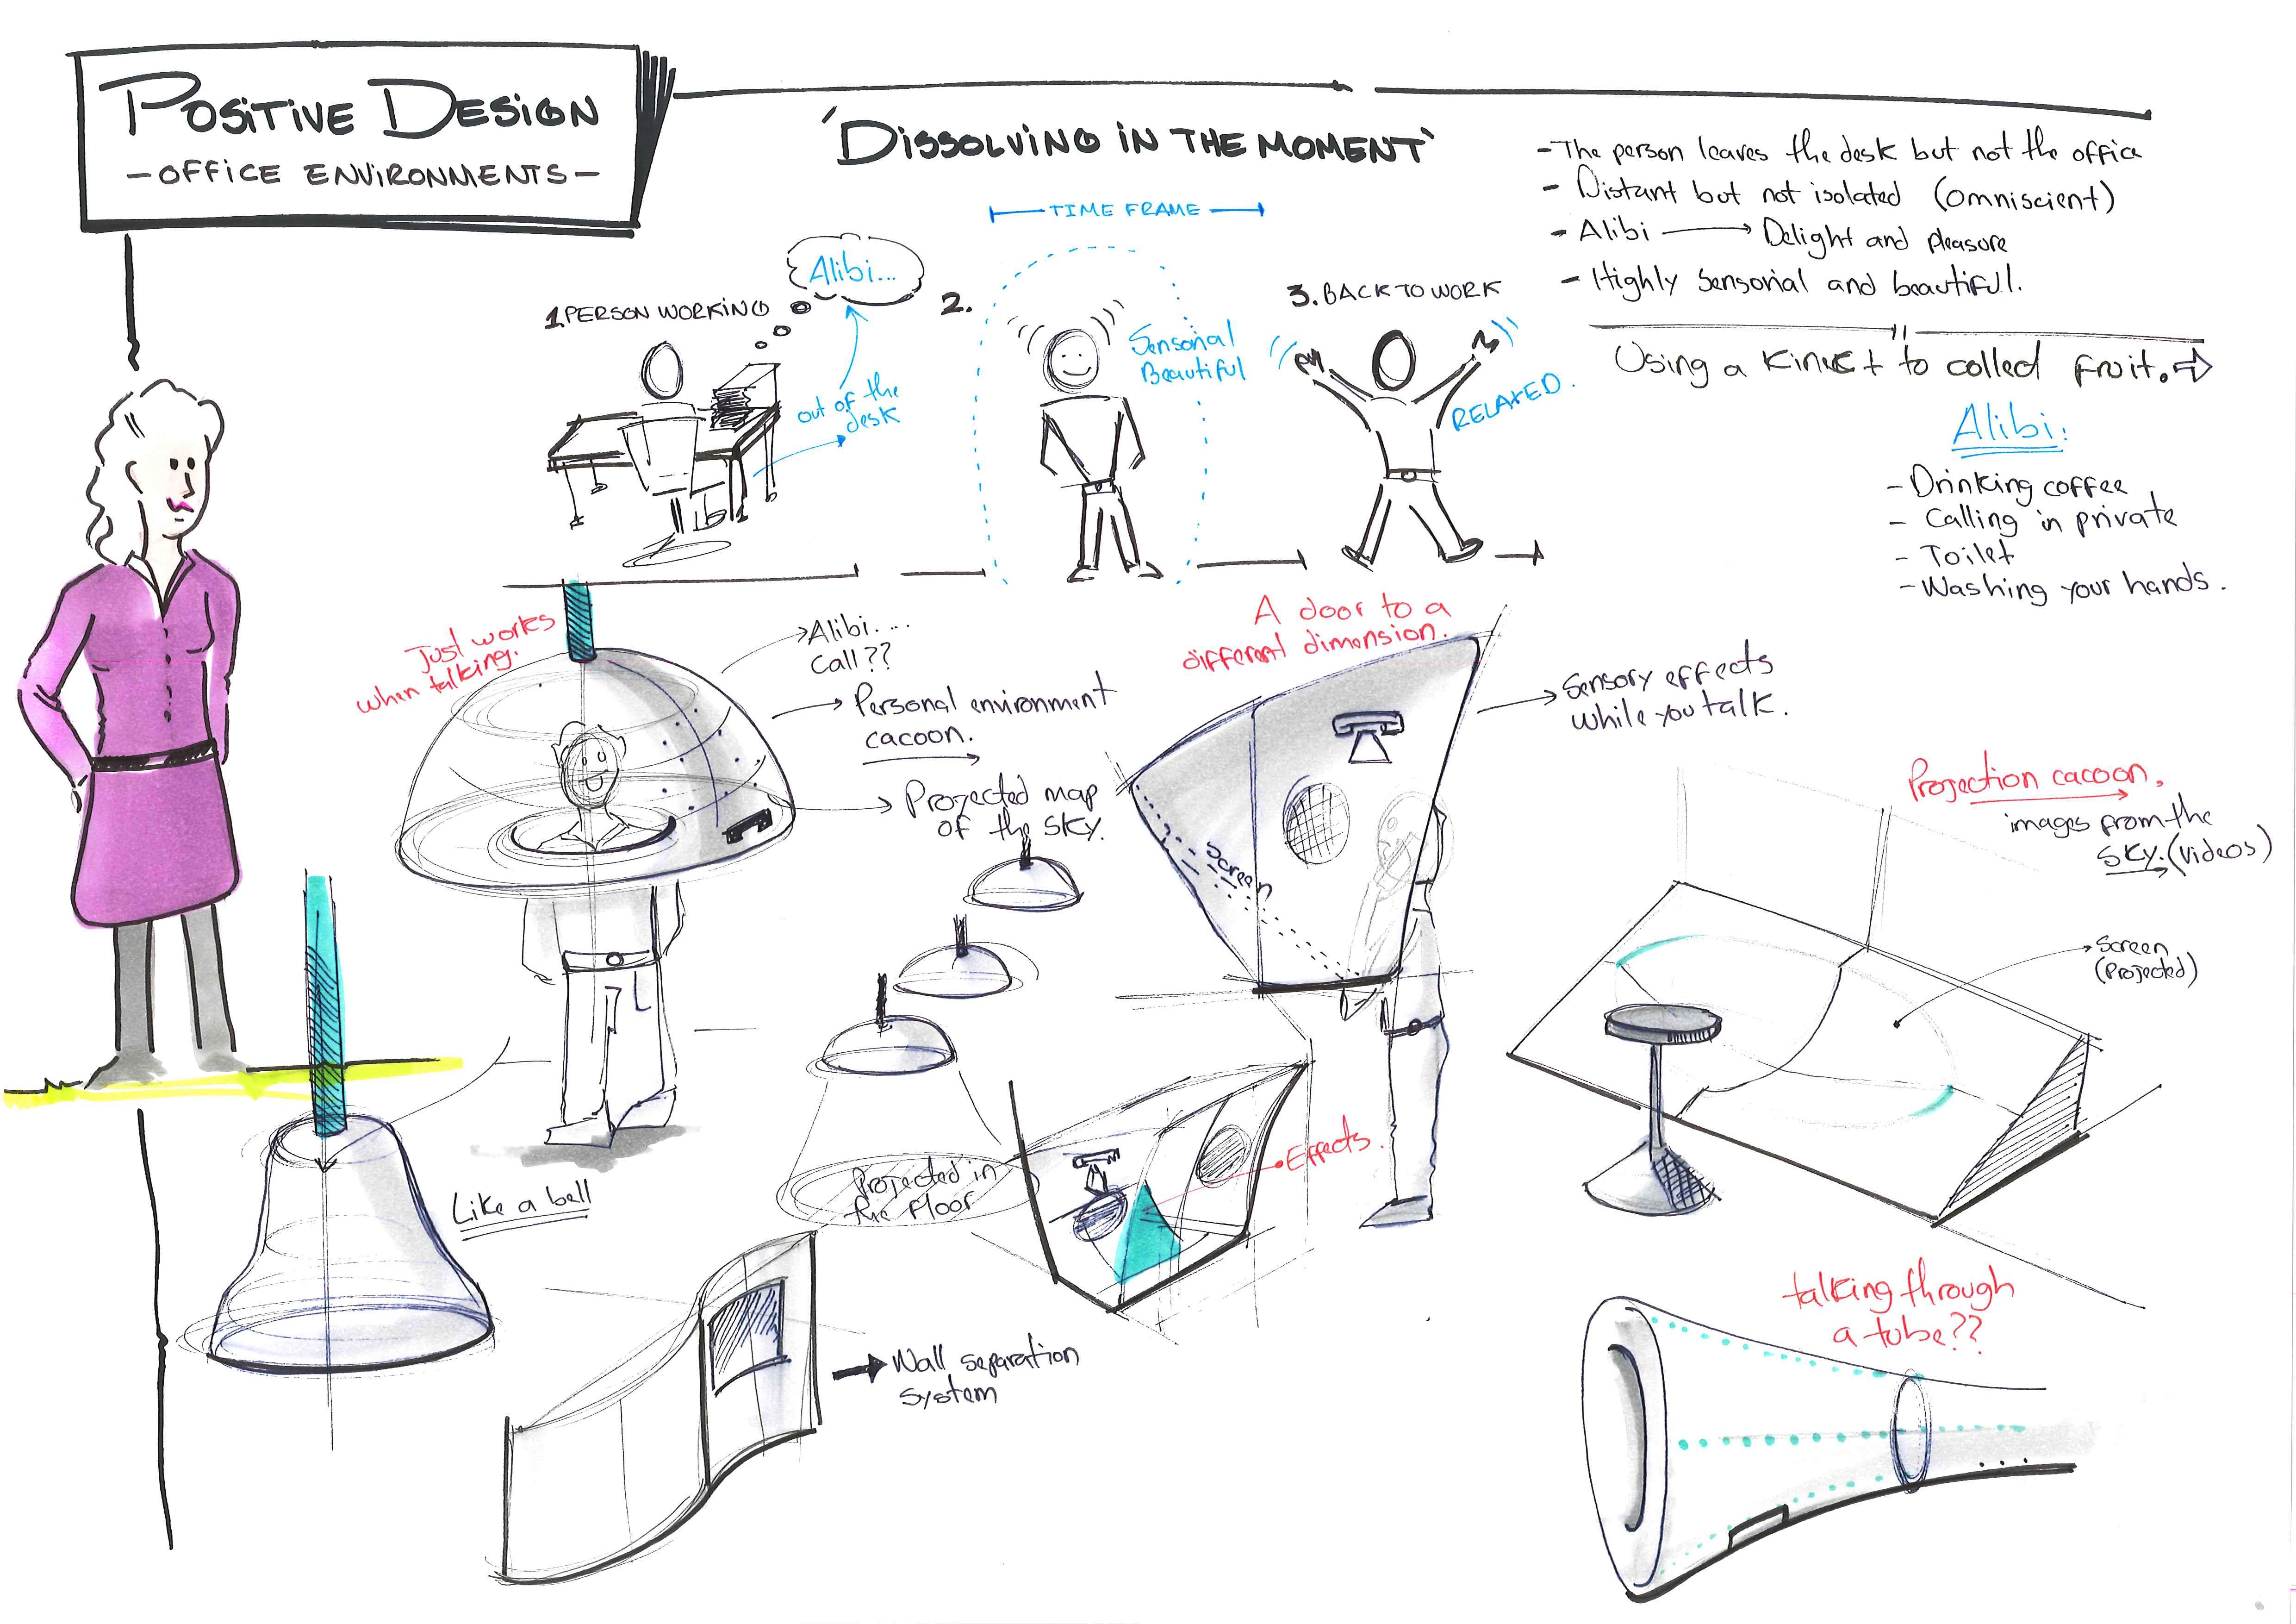 POSITIVE DESIGN
- OFFICE ENVIRONMENTS -
'DISSOLVING IN THE MOMENT'
- The person leaves the desk but not the office
- Distant but not isolated (omniscient)
- Alibi → Delight and pleasure
- Highly sensorial and beautiful.
TIME FRAME
Alibi...
1. PERSON WORKING
out of the
desk
2.
Sensorial
Beautiful
3. BACK TO WORK
RELAXED.
Using a to collect fruit.
Alibi:
- Drinking coffee
- Calling in private
- Toilet
- Washing your hands.
Just works
when talking.
Alibi....
Call??
Personal environment
cacoon.
Projected map
of the sky.
A door to a
different dimension.
Sensory effects
while you talk.
Screen
Projection cacoon.
images from the
sky. (videos)
Screen
(Projected)
Like a bell
Projected in
the floor
Effects.
Wall separation
system
talking through
a tube??